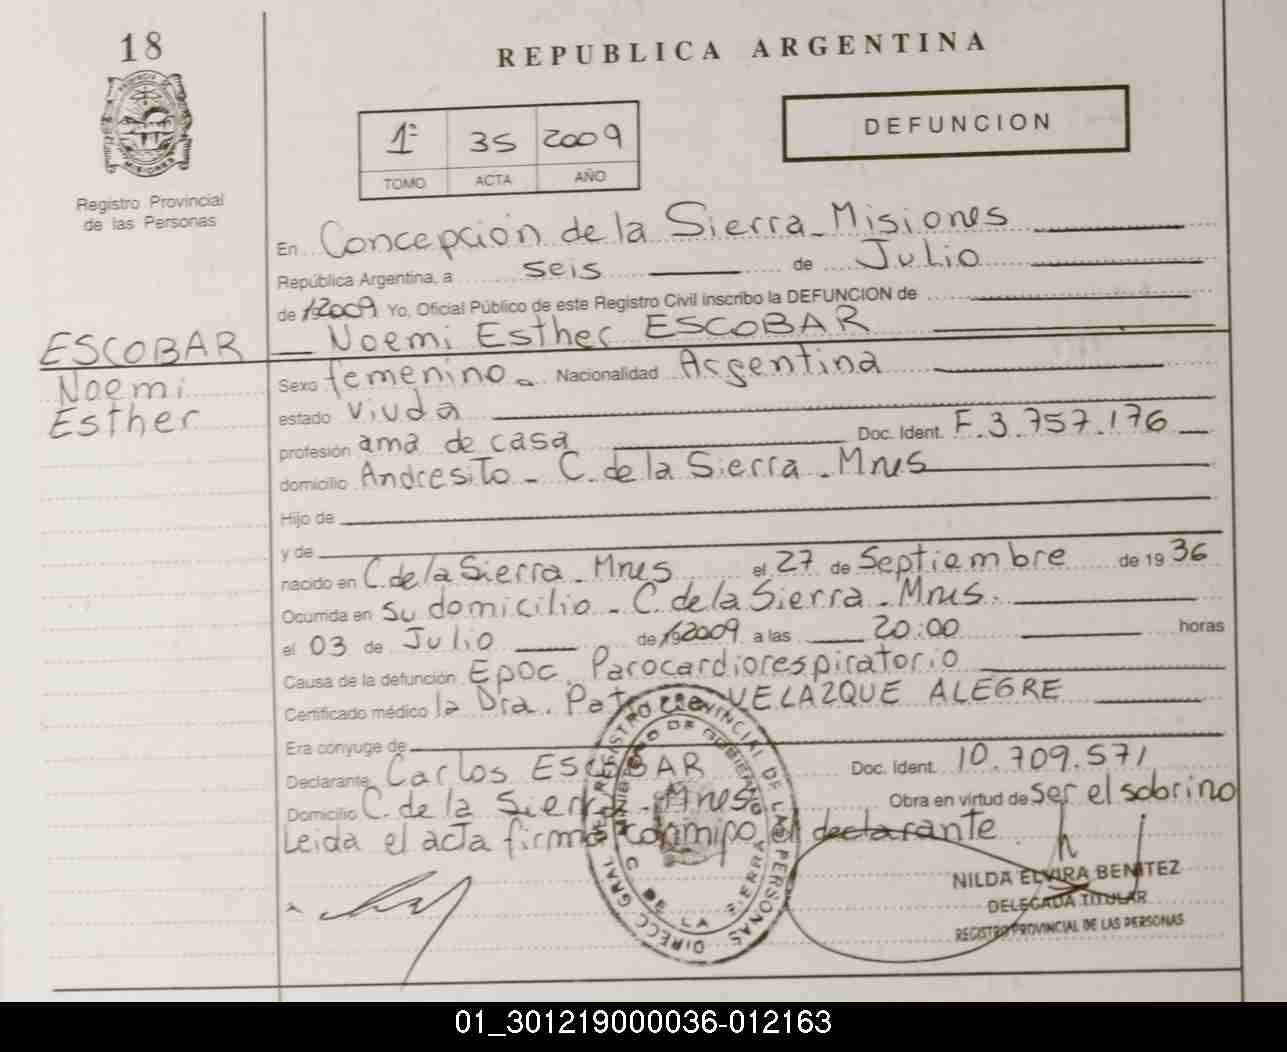 18
REPUBLICA ARGENTINA
DEFUNCION
1º 35 2009
TOMO ACTA AÑO
Registro Provincial
de las Personas
En Concepción de la Sierra - Misiones
República Argentina, a seis de Julio
de 2009 Yo, Oficial Público de este Registro Civil inscribo la DEFUNCION de
ESCOBAR
Noemi Esther ESCOBAR
Noemi
Esther
Sexo femenino - Nacionalidad Argentina
estado viuda
profesión ama de casa Doc. Ident. F. 3.757.176
domicilio Andresito - C. de la Sierra - Mnes
Hijo de
y de
nacido en C. de la Sierra - Mnes el 27 de Septiembre de 1936
Ocurrida en su domicilio - C. de la Sierra - Mnes.
el 03 de Julio de 2009 a las 20:00 horas
Causa de la defunción Epoc. Parocardiorespiratorio
Certificado médico la Dra. VELAZQUE ALEGRE
Era cónyuge de
Declarante Carlos ESCOBAR Doc. Ident. 10.709.571
Domicilio C. de la Sierra - Mnes Obra en virtud de ser el sobrino
Leida el acta firma conmigo el declarante
DIRECC GRAL DE REGISTRO PROVINCIAL DE LAS PERSONAS
MINISTERIO DE GOBIERNO
C DE LA SIERRA
NILDA ELVIRA BENITEZ
DELEGADA TITULAR
REGISTRO PROVINCIAL DE LAS PERSONAS
01_301219000036-012163